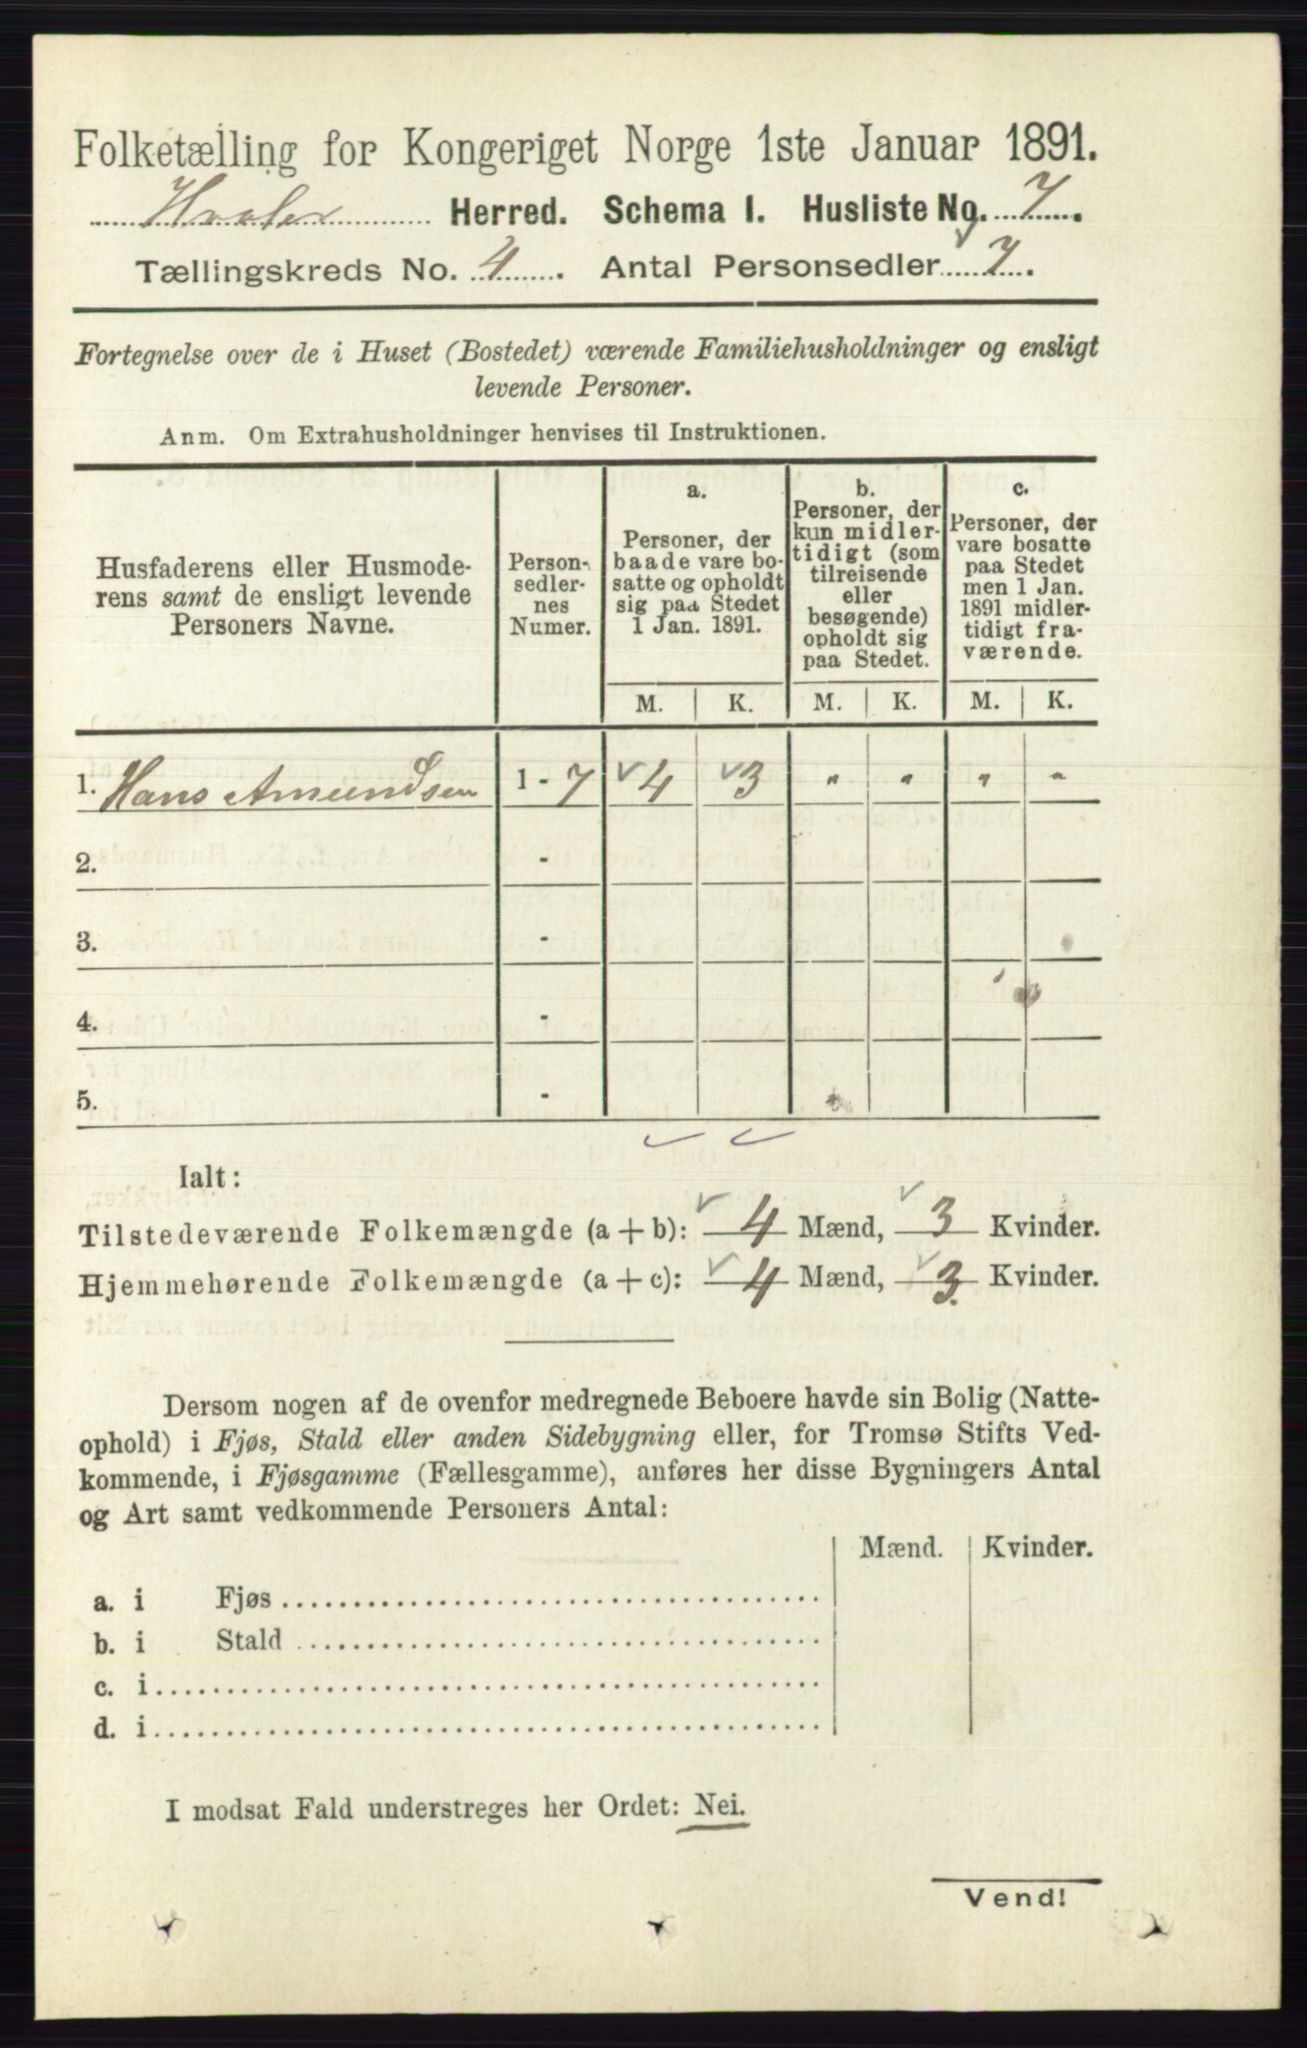 Folketælling for Kongeriget Norge 1ste Januar 1891.
Hvaler Herred. Schema I. Husliste No. 7.
Tællingskreds No. 4. Antal Personsedler 7.
Fortegnelse over de i Huset (Bostedet) værende Familiehusholdninger og ensligt
levende Personer.
Anm. Om Extrahusholdninger henvises til Instruktionen.
Husfaderens eller Husmode-
rens samt de ensligt levende
Personers Navne.
Person-
sedler-
nes
Numer.
a.
Personer, der
baade vare bo-
satte og opholdt
sig paa Stedet
1 Jan. 1891.
b.
Personer, der
kun midler-
tidigt (som
tilreisende
eller
besøgende)
opholdt sig
paa Stedet.
c.
Personer, der
vare bosatte
paa Stedet
men 1 Jan.
1891 midler-
tidigt fra-
værende.
M. K. M. K. M. K.
1. Hans Amundsen 1 - 7 4 3 " " " "
2. -
3. -
4. -
5. -
Ialt:
Tilstedeværende Folkemængde (a + b): 4 Mænd, 3 Kvinder.
Hjemmehørende Folkemængde (a + c): 4 Mænd, 3. Kvinder.
Dersom nogen af de ovenfor medregnede Beboere havde sin Bolig (Natte-
ophold) i Fjøs, Stald eller anden Sidebygning eller, for Tromsø Stifts Ved-
kommende, i Fjøsgamme (Fællesgamme), anføres her disse Bygningers Antal
og Art samt vedkommende Personers Antal:
Mænd. Kvinder.
a. i Fjøs
b. i Stald
c. i
d. i
I modsat Fald understreges her Ordet: Nei.
Vend!